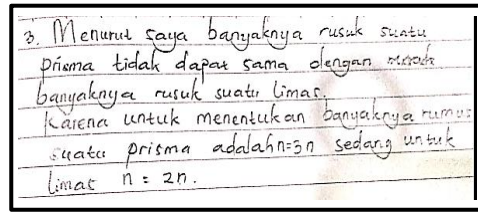 3. Menurut saya banyaknya rusuk suatu
prisma tidak dapat sama dengan
banyaknya rusuk suatu limas.
Karena untuk menentukan banyaknya rumus
suatu prisma adalah n=3n sedang untuk
limas n = 2n.